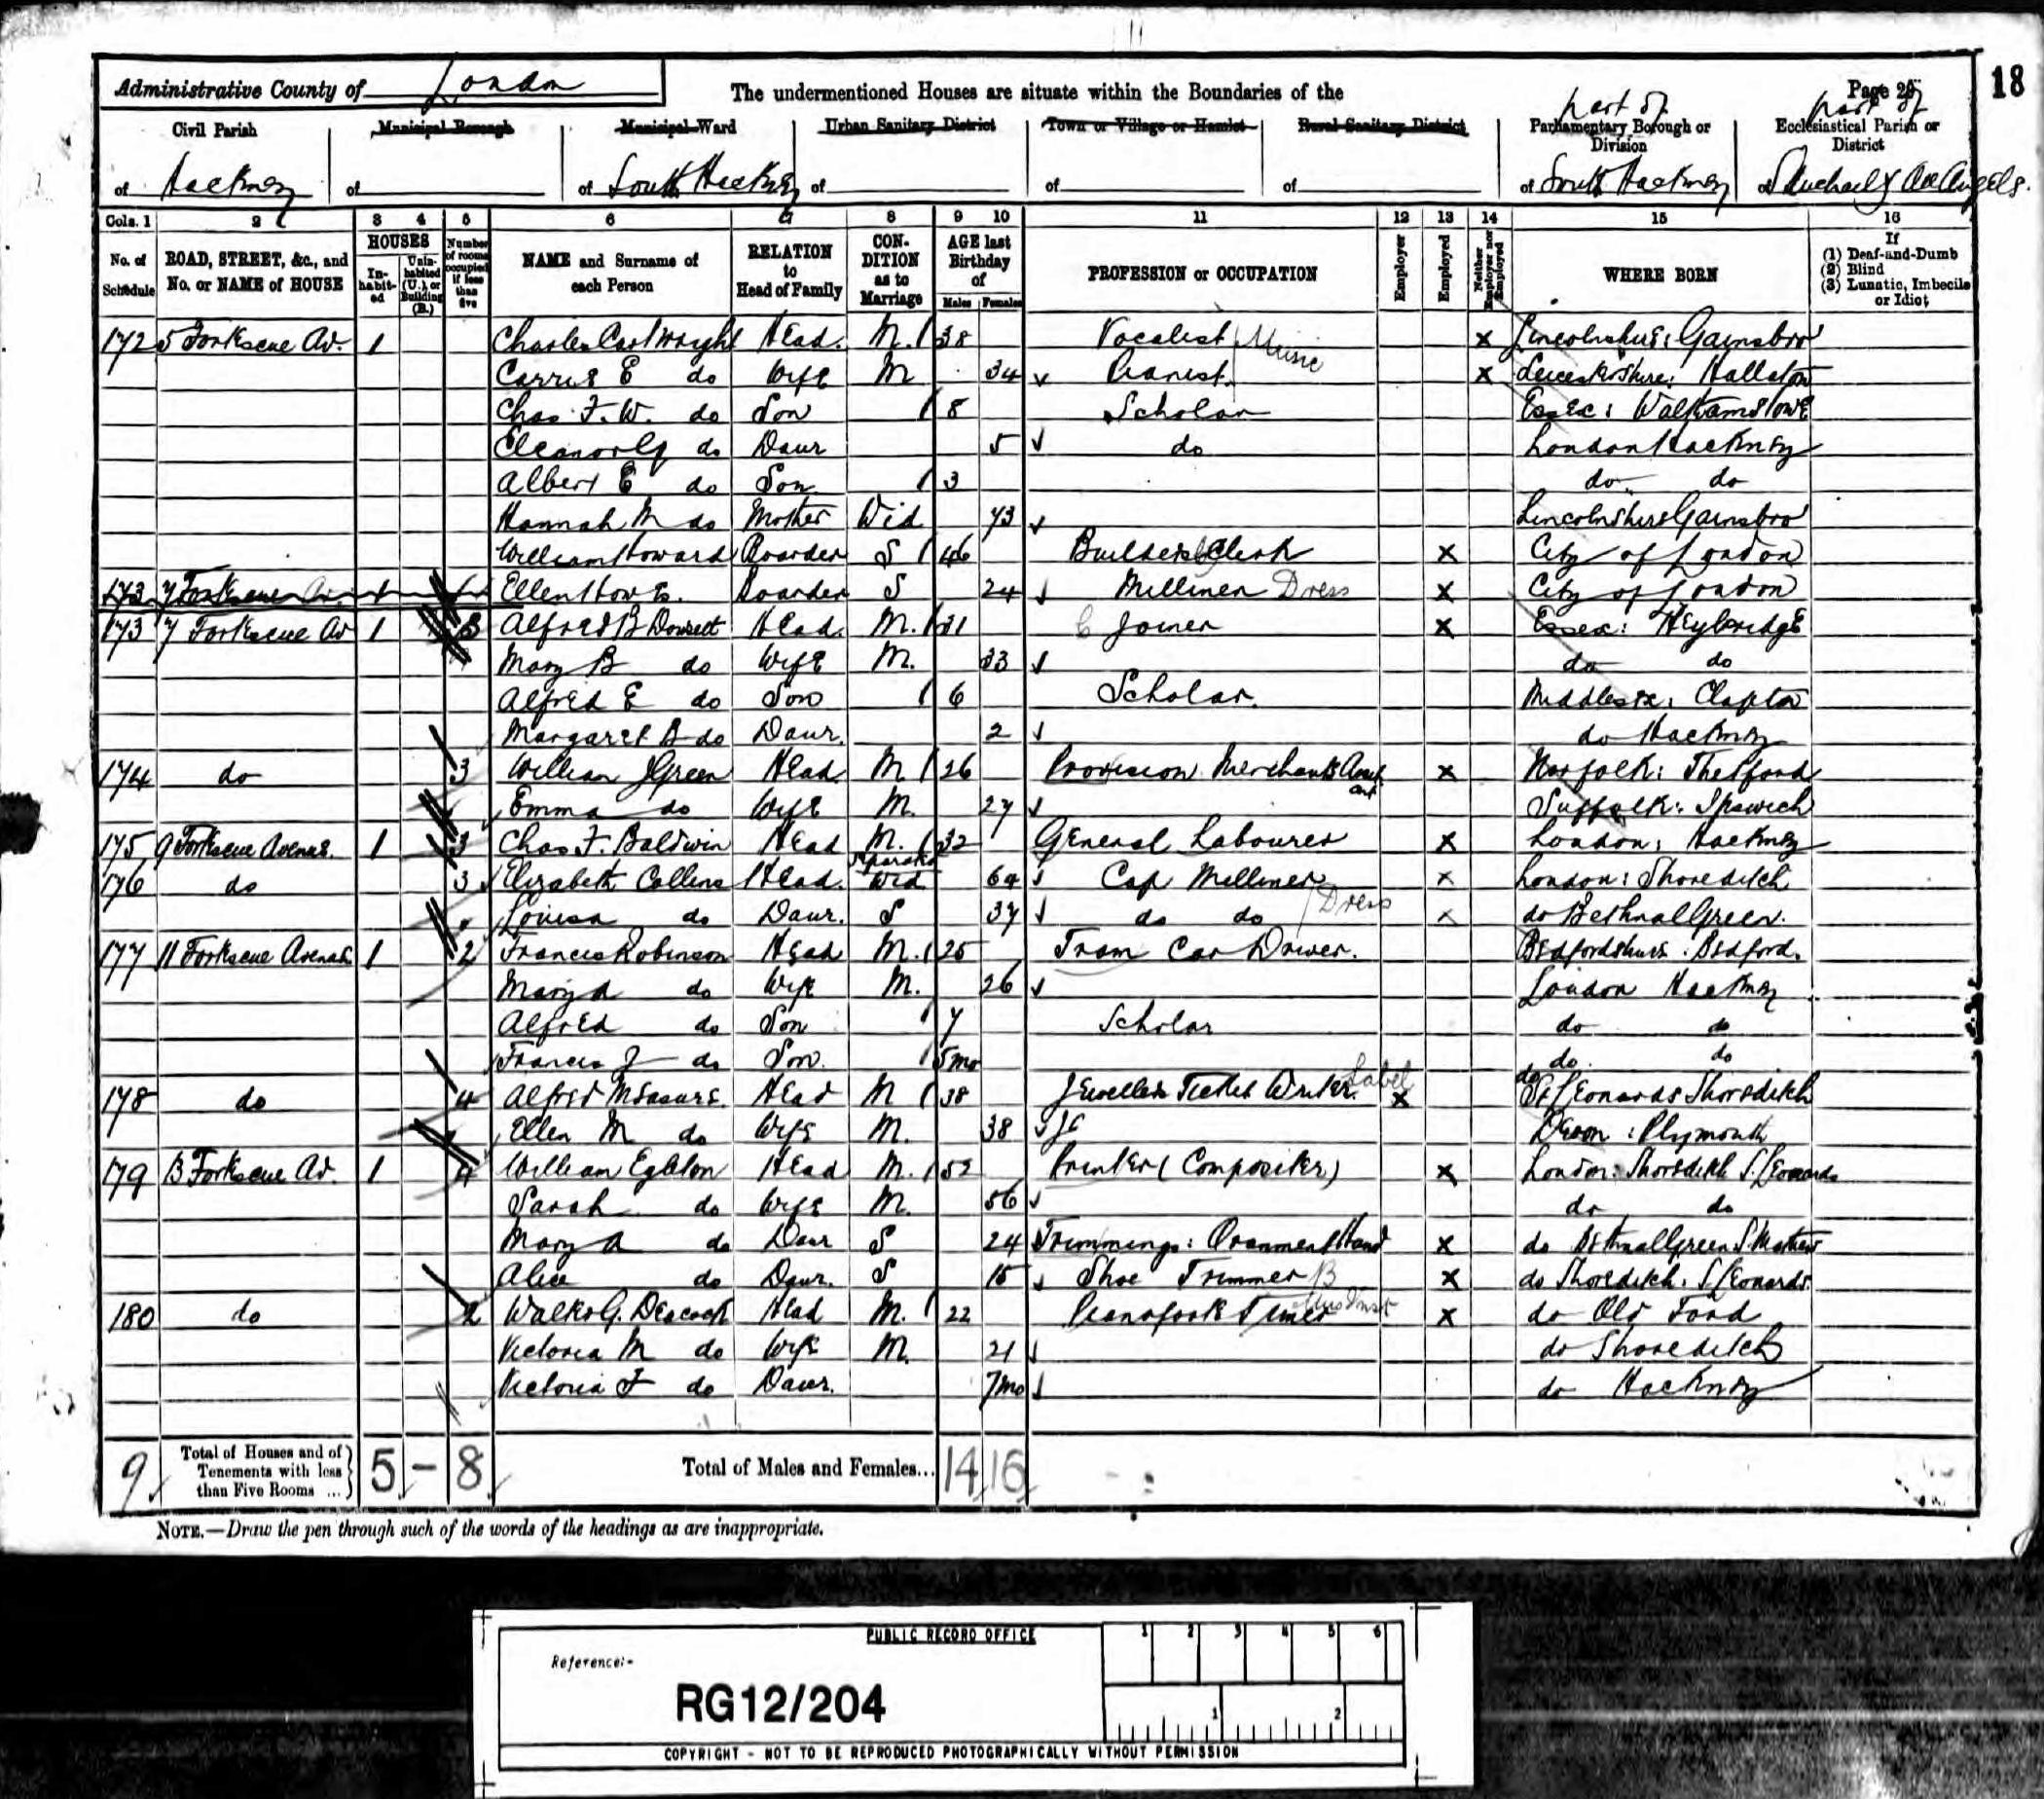 18
Administrative County of London
The undermentioned Houses are situate within the Boundaries of the
Page 25
Civil Parish
Municipal Borough
Municipal Ward
Urban Sanitary District
Town or Village or Hamlet
Rural Sanitary District
part of
Parliamentary Borough or Division
part of
Ecclesiastical Parish or District
of Hackney
of
of South Hackney
of
of
of
of South Hackney
of S Michael & All Angels.
Cols. 1 2 3 4 5 6 7 8 9 10 11 12 13 14 15 16
No. of Schedule
ROAD, STREET, &c., and No. or NAME of HOUSE
HOUSES
Inhabited
Uninhabited (U.), or Building (B.)
Number of rooms occupied if less than five
NAME and Surname of each Person
RELATION to Head of Family
CONDITION as to Marriage
AGE last Birthday of
Males Females
PROFESSION or OCCUPATION
Employer
Employed
Neither Employer nor Employed
WHERE BORN
If
(1) Deaf-and-Dumb
(2) Blind
(3) Lunatic, Imbecile or Idiot
172 5 Forkscue Av. 1 Charles Cartwright Head. M. 38 Vocalist Music x Lincolnshire: Gainsbro'
Carrie E do Wife M 34 Pianist x Leicestershire: Hallaton
Chas. F. W. do Son 8 Scholar Essex: Walthamstowe
Eleanor G do Daur 5 do London Hackney
Albert E do Son 3 do do
Hannah M do Mother Wid 73 Lincolnshire Gainsbro'
William Howard Boarder S 46 Builders Clerk x City of London
173 7 Forkscue Av. 1 Ellen Howes. Boarder S 24 Milliner Dress x City of London
173 7 Forkscue Av 1 3 Alfred B Dowsett Head. M. 31 Joiner x Essex: Heybridge
Mary B do Wife M. 33 do do
Alfred E do Son 6 Scholar. Middlesex: Clapton
Margaret B do Daur. 2 do Hackney
174 do 3 William J Green Head. M 26 Provision Merchants Assistant x Norfolk: Thetford
Emma do Wife M. 27 Suffolk: Ipswich
175 9 Forkscue Avenue. 1 3 Chas. F. Baldwin Head M. 32 General Labourer x London: Hackney
176 do 3 Elizabeth Collins Head. Wid 64 Cap Milliner x London: Shoreditch
Louisa do Daur. S 37 do do Dress x do Bethnal Green.
177 11 Forkscue Avenue 1 2 Francis Robinson Head M. 25 Tram Car Driver. Bedfordshire. Bedford.
Mary A do Wife M. 26 London Hackney
Alfred do Son 7 Scholar do do
Francis J do Son. 5 mo do do
178 do 4 Alfred Measure. Head M 38 Jewellers Ticket Writer. Label x do St Leonards Shoreditch
Ellen M do Wife M. 38 Devon: Plymouth
179 13 Forkscue Av. 1 4 William Egleton Head M. 52 Printer (Compositer) x London: Shoreditch S. Leonards
Sarah do Wife M. 56 do do
Mary A do Daur S 24 Trimmings: Oranment Hand x do Bethnal Green S. Mathew
Alice do Daur. S 15 Shoe Trimmer B x do Shoreditch. S. Leonards.
180 do 2 Walter G. Deacock Head M. 22 Pianoforte Tuner Mus Inst x do Old Ford
Victoria M do Wife M. 21 do Shoreditch
Victoria F do Daur. 7 mo do Hackney
9 Total of Houses and of Tenements with less than Five Rooms ... 5 - 8 Total of Males and Females... 14 16
NOTE.—Draw the pen through such of the words of the headings as are inappropriate.
PUBLIC RECORD OFFICE
1 2 3 4 5 6
Reference:-
RG12/204
1 2
COPYRIGHT - NOT TO BE REPRODUCED PHOTOGRAPHICALLY WITHOUT PERMISSION